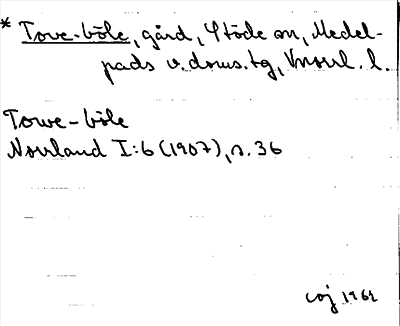 * Towe-böle, gård, Stöde sn, Medel-
pads v.doms.tg, Vnorrl. l.
Towe-böle
Norrland I:6 (1907), s. 36
coj 1962